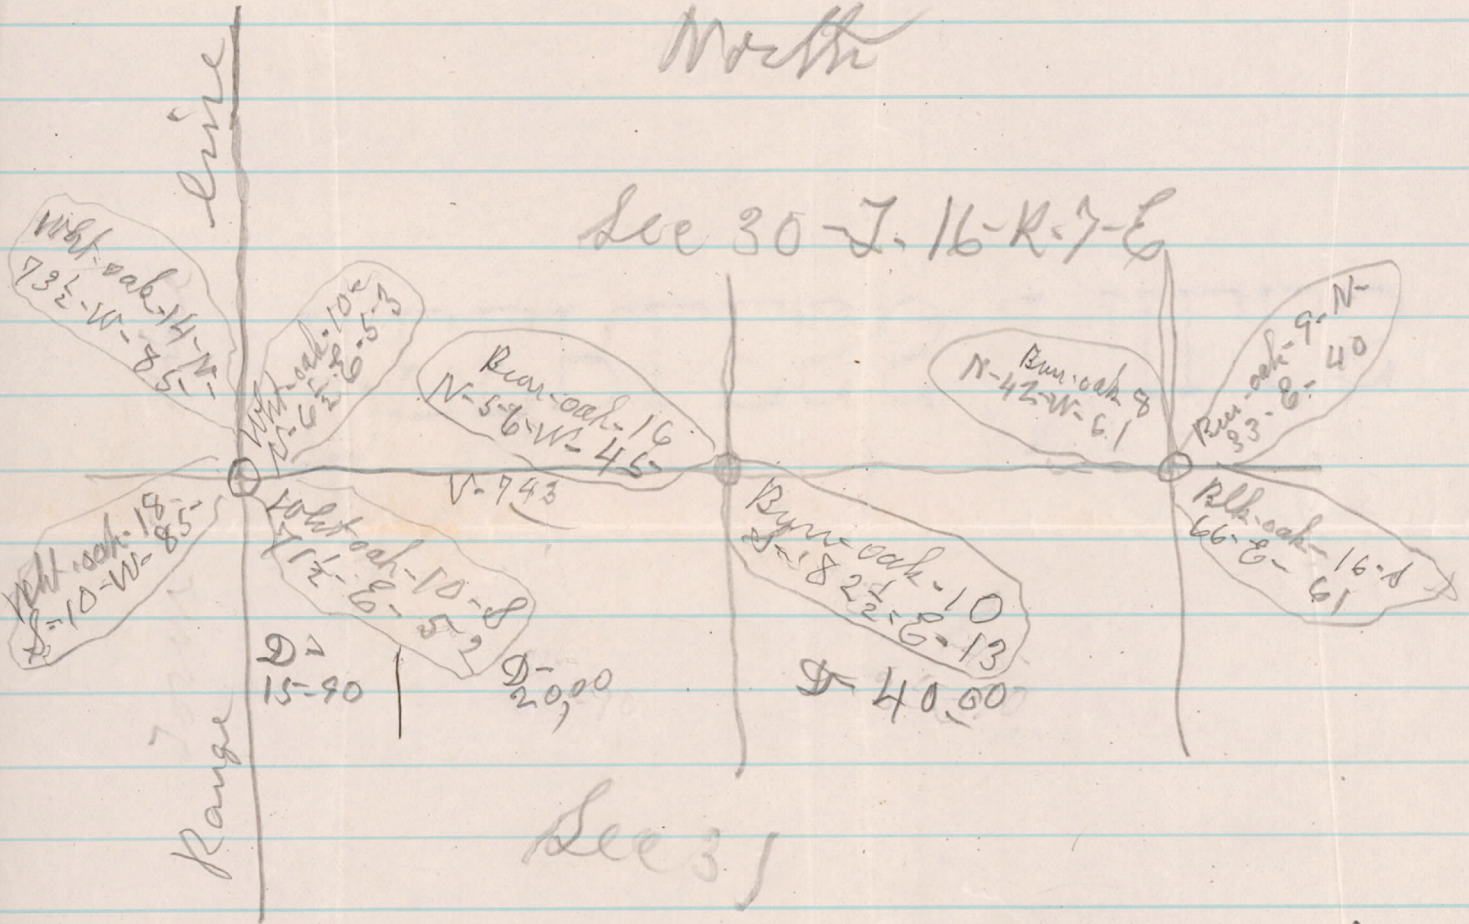 North
Range Line
Sec 30-T. 16-R.7-E
Wht-oak-14-N-
73 1/2-W-85
Wht-oak-10-
N-6 1/2-E-53
Burr-oak-16
N-56-W-45
Burr-oak-8
N-42-W-61
Burr-oak-9-N-
33-E-40
V-743
Wht-oak-18-
S-10-W-85
Wht-oak-10-S
71 1/2-E-52
Burr-oak-10
S-82 1/2-E-13
Blk-oak-16-S
66-E-61
D-
15-90
D-
20,00
D-40.00
Sec 31